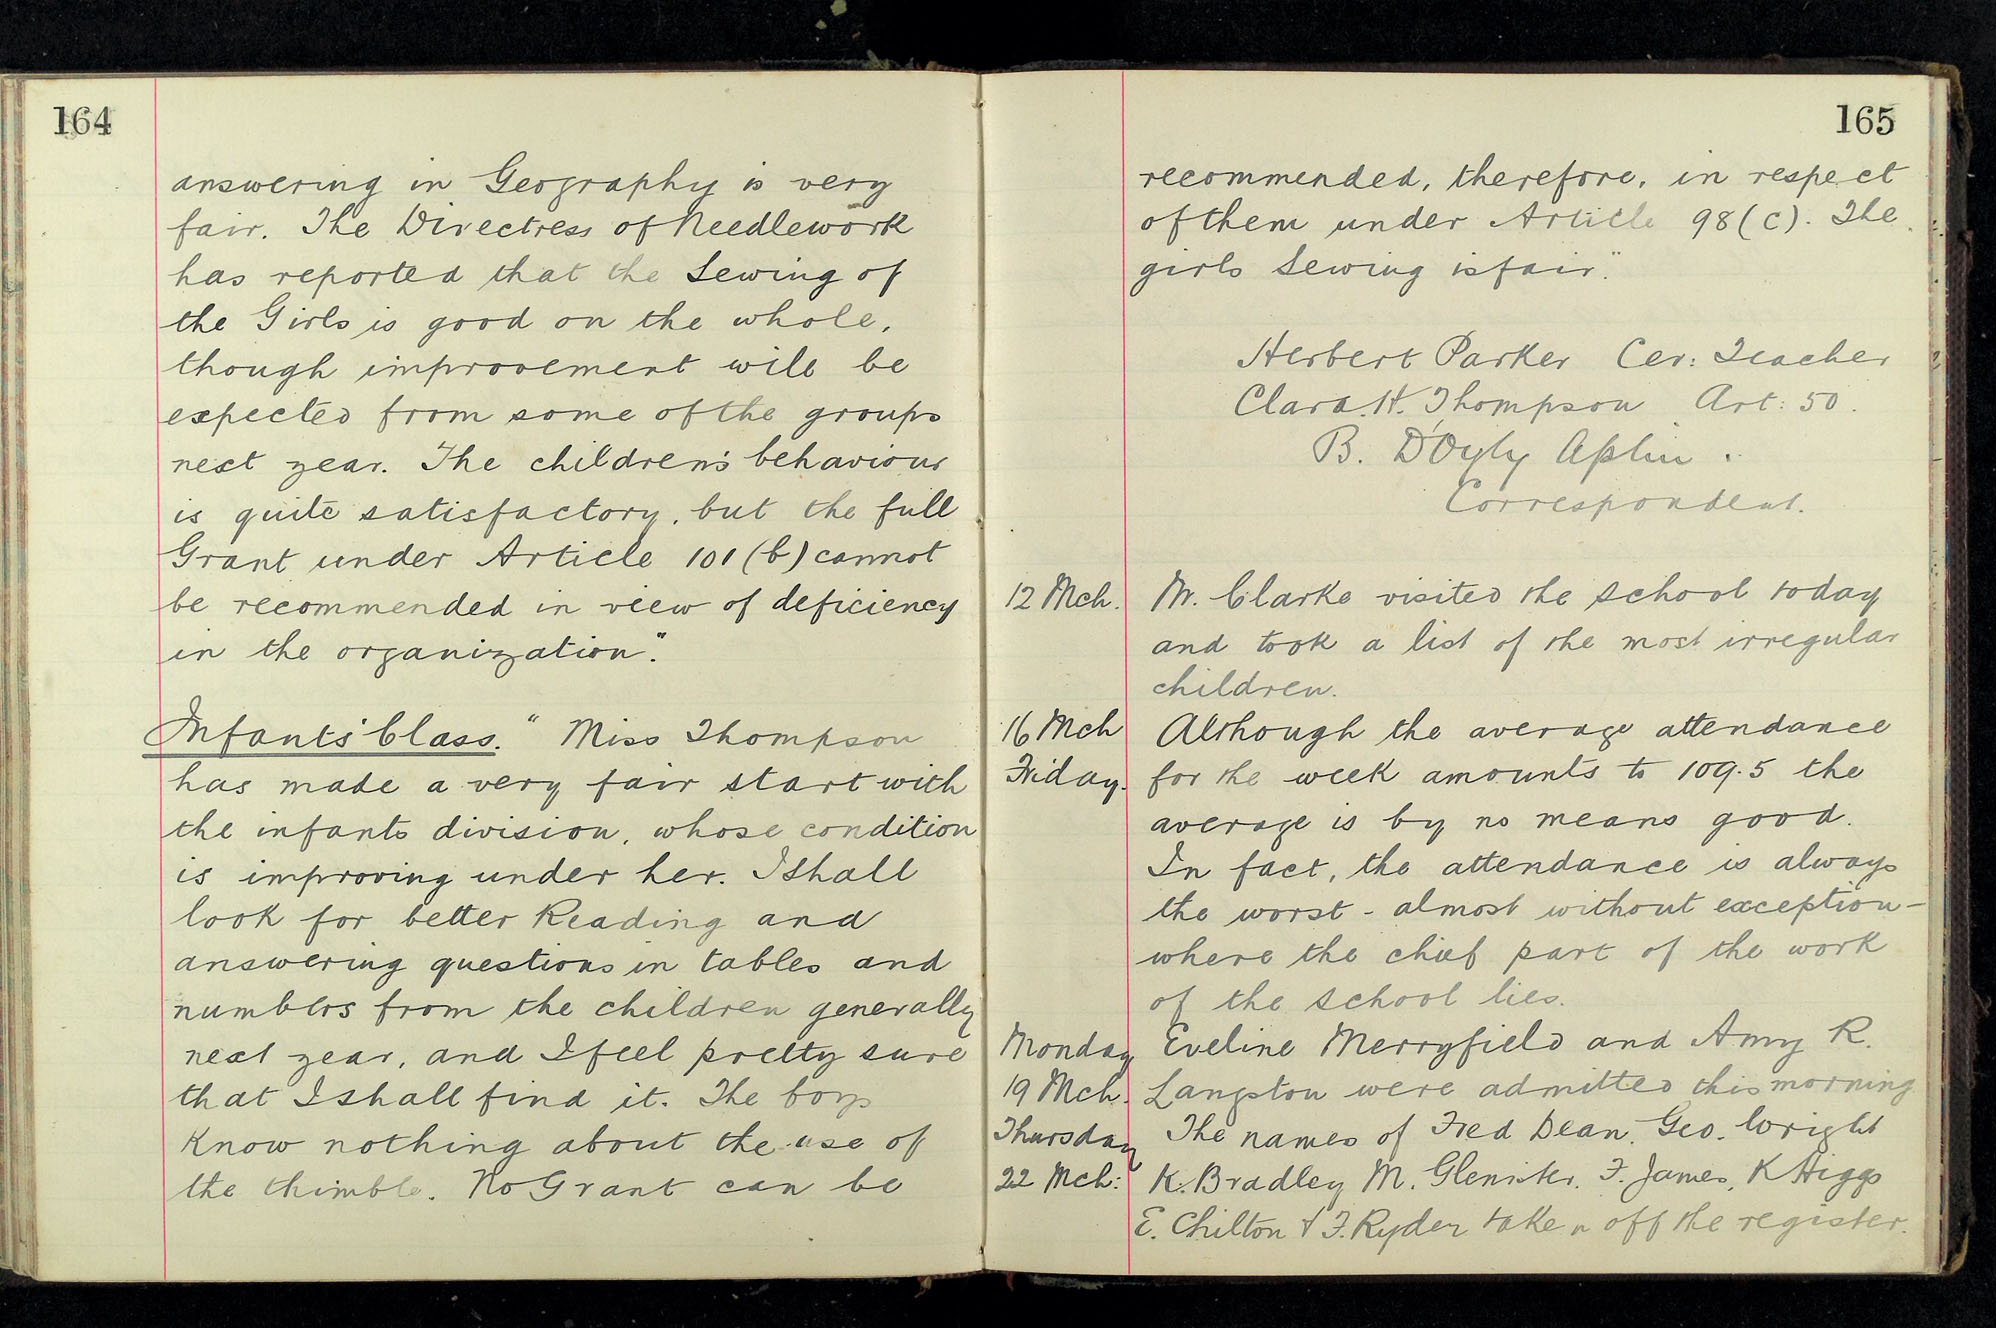 164
answering in Geography is very
fair. The Directress of Needlework
has reported that the Sewing of
the Girls is good on the whole,
though improvement will be
expected from some of the groups
next year. The children's behaviour
is quite satisfactory, but the full
Grant under Article 101 (b) cannot
be recommended in view of deficiency
in the organization."
Infants' Class. " Miss Thompson
has made a very fair start with
the infants division, whose condition
is improving under her. I shall
look for better Reading and
answering questions in tables and
numbers from the children generally
next year, and I feel pretty sure
that I shall find it. The boys
know nothing about the use of
the thimble. No Grant can be
165
recommended, therefore, in respect
of them under Article 98 (c). The
girls Sewing is fair."
Herbert Parker Cer: Teacher
Clara. H. Thompson Art: 50.
B. D'Oyly Aplin.
Correspondent.
12 Mch. Mr. Clarke visited the school today
and took a list of the most irregular
children.
16 Mch Although the average attendance
Friday. for the week amounts to 109.5 the
average is by no means good.
In fact, the attendance is always
the worst - almost without exception -
where the chief part of the work
of the school lies.
Monday Eveline Merryfield and Amy R.
19 Mch. Langston were admitted this morning
Thursday The names of Fred Dean, Geo. Wright
22 Mch: K. Bradley M. Glenister, F. James, K Higgs
E. Chilton & F. Ryder taken off the register.